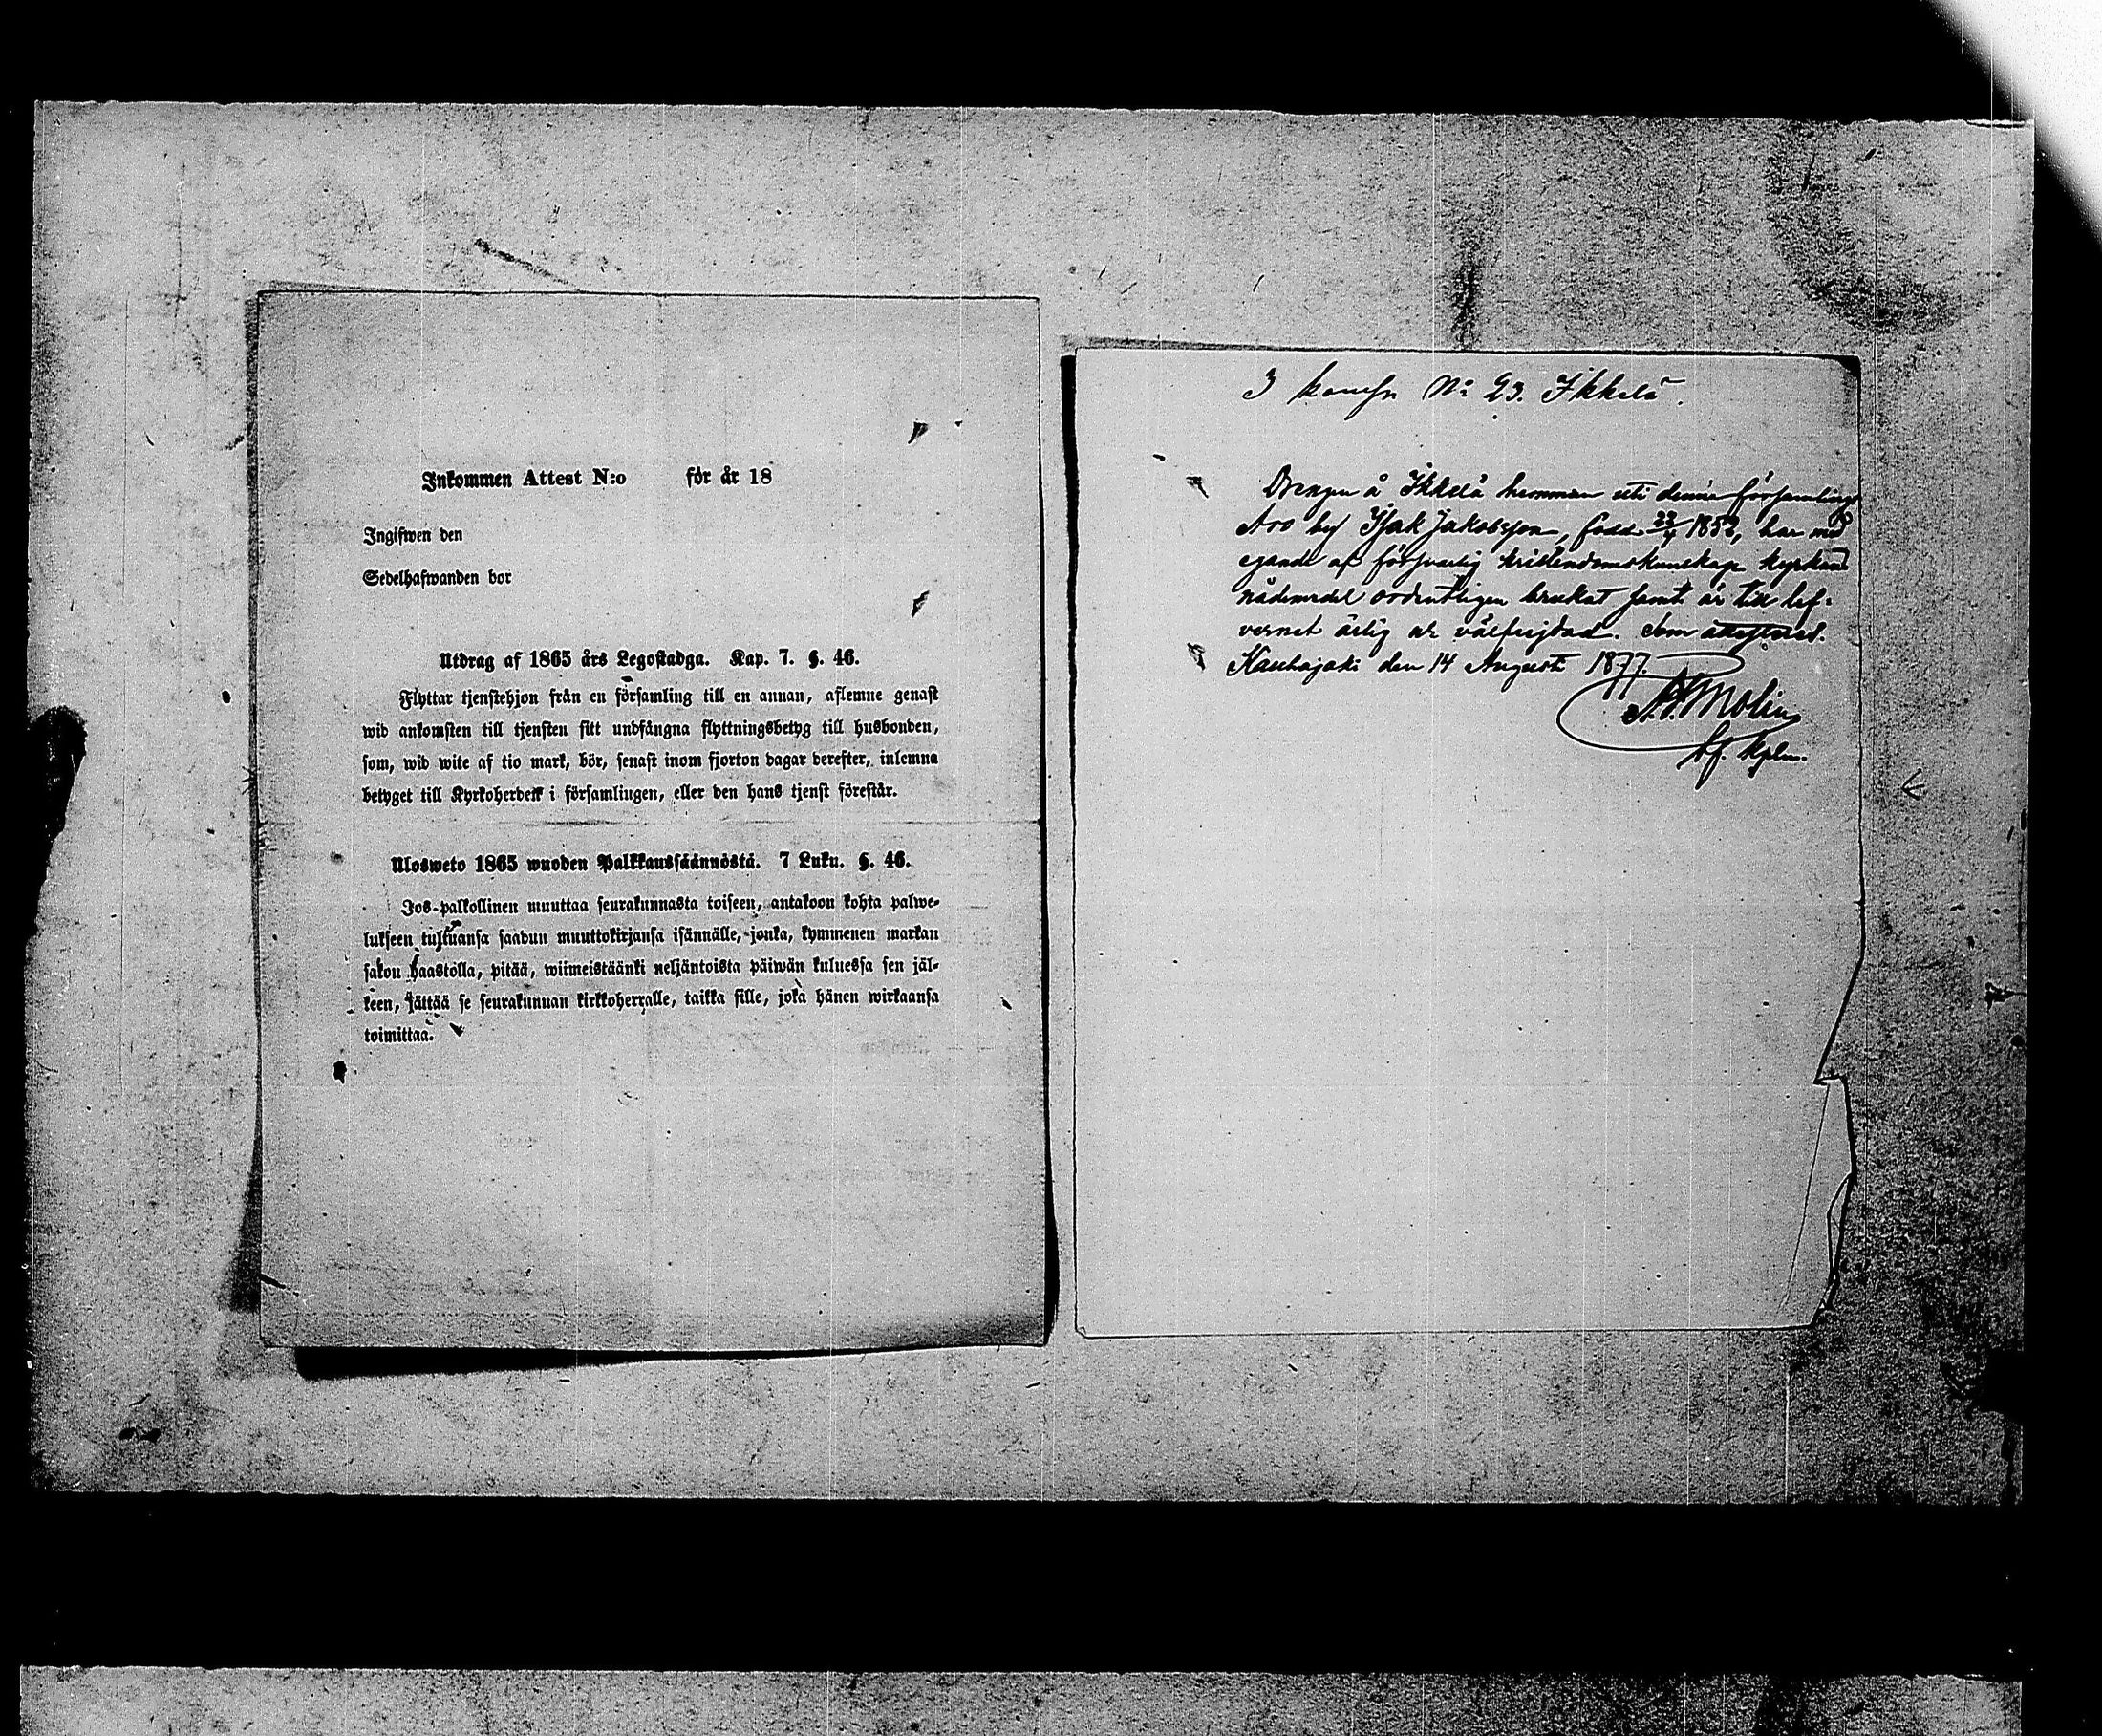 Inkommen Attest N:o för år 18
Ingifwen den
Sedelhafwanden bor
Utdrag af 1865 års Legostadga. Kap. 7. §. 46.
Flyttar tjenstehjon från en församling till en annan, aflemne genast
wid ankomsten till tjensten sitt undfångna flyttningsbetyg till husbonden,
som, wid wite af tio mark, bör, senast inom fjorton dagar derefter, inlemna
betyget till Kyrkoherden i församlingen, eller den hans tjenst förestår.
Ulosweto 1865 wuoden Palkkaussäännöstä. 7 Luku. §. 46.
Jos palkollinen muuttaa seurakunnasta toiseen, antakoon kohta palwe-
lukseen tultuansa saadun muuttokirjansa isännälle, jonka, kymmenen markan
sakon haastolla, pitää, wiimeistäänki neljäntoista päiwän kuluessa sen jäl-
keen, jättää se seurakunnan kirkkoherralle, taikka sille, joka hänen wirkaansa
toimittaa.
I No 23. Ikkelä.
Drengen å Ikkelä hemman uti denna församlings
Aro by Isak Jakobsson, född 23/4 1853, har med
egande af försvarlig kristendomskunskap kyrkans
nådemedel ordentligen brukat samt är till lef-
vernet ärlig och välfrejdad. Som attesteras.
Kauhajoki den 14 Augusti 1877.
Molin